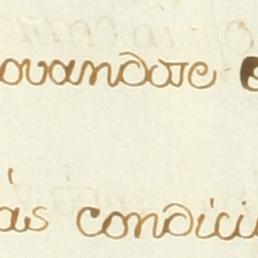 ovandose
ás condici